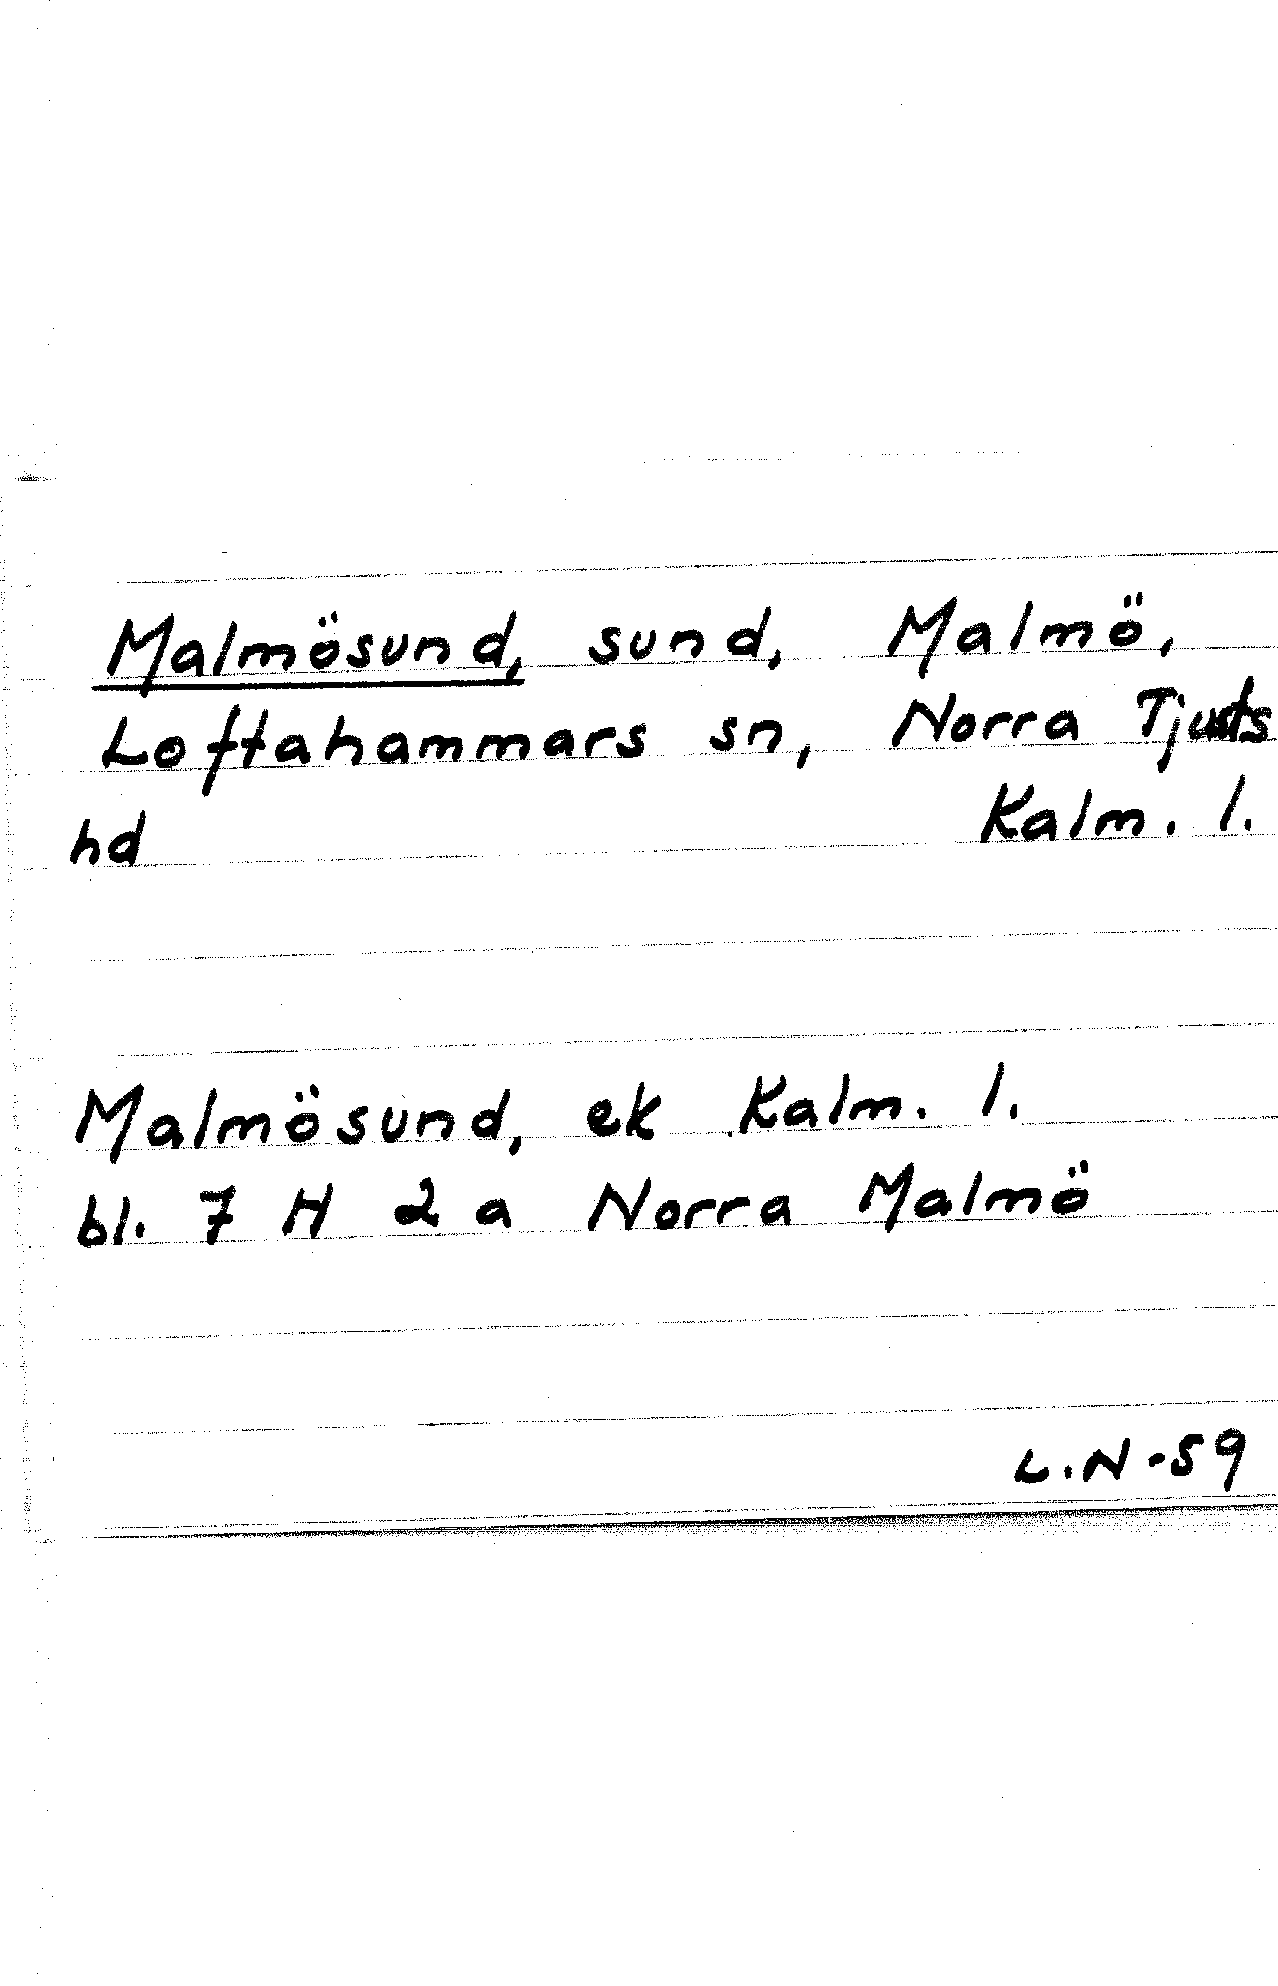 Malmösund, sund, Malmö,
Loftahammars sn, Norra Tjusts
hd Kalm. l.
Malmösund, ek Kalm. l.
bl. 7 H 2 a Norra Malmö
L.N -59